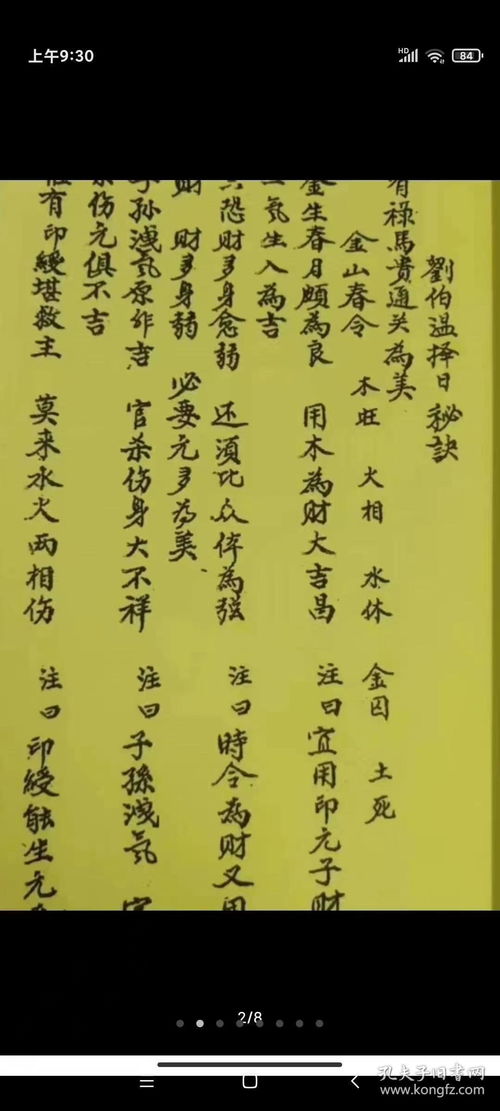 上午9:30
HD 84
劉伯温择日秘訣
有禄馬貴通关為美
金山春令 木旺 火相 水休 金囚 土死
金生春月頗為良 用木為财大吉昌 注曰宜用印元子财
氣生入為吉
只恐财多身愈弱 还須比众伴為强 注曰時令為财又用
财 财多身弱 必要元多為美
子孙洩氣原作吉 官杀伤身大不祥 注曰子孫洩氣 官
杀伤元俱不吉
惟有印綬堪救主 莫来水火两相伤 注曰印綬能生元
2/8
孔夫子旧书网
www.kongfz.com